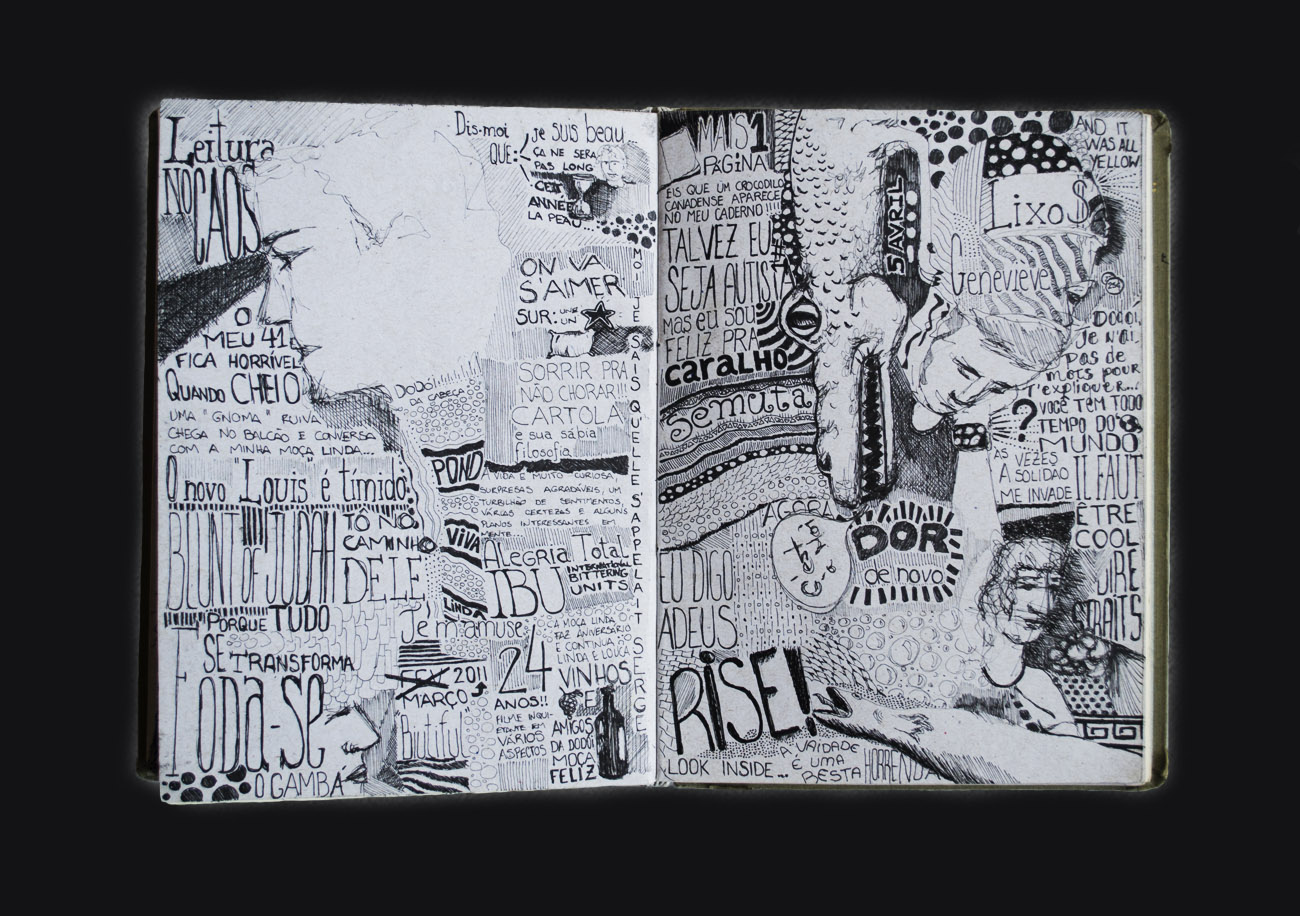 Leitura
NO CAOS
O
MEU 41
FICA HORRÍVEL
QUANDO CHEIO
UMA "GNOMA" RUIVA
CHEGA NO BALCÃO E CONVERSA
COM A MINHA MOÇA LINDA...
O novo "Louis" é tímido.
BLUNT OF JUDAH
TÔ NO
CAMINHO
DELE
PORQUE TUDO
SE TRANSFORMA
FODA-SE
O GAMBÁ
Dis-moi
QUE:
Je SUIS beau
ÇA NE SERA
PAS LONG
CET
ANNÉE
LA PEAU...
ON VA
S'AIMER
SUR: UNE
UN
DODÓI
DA CABEÇA
SORRIR PRA
NÃO CHORAR!!!
CARTOLA
e sua sábia
filosofia
POND
VIVA
LINDA
A VIDA É MUITO CURIOSA,
SURPRESAS AGRADÁVEIS, UM
TURBILHÃO DE SENTIMENTOS,
VÁRIAS CERTEZAS E ALGUNS
PLANOS INTERESSANTES EM
MENTE...
ALEGRIA TOTAL
IBU
INTERNATIONAL
BITTERING
UNITS
Je m'amuse
2011
MARÇO
"Biutiful"
24
ANOS!!
FILME INQUI-
ETANTE EM
VÁRIOS
ASPECTOS
A MOÇA LINDA
FAZ ANIVERSÁRIO
E CONTINUA
LINDA E LOUCA
VINHOS
E
AMIGOS
DA DODÓI
MOÇA
FELIZ
MOI JE SAIS QU'ELLE S'APPELAIT SERGE
MAIS 1
PÁGINA
EIS QUE UM CROCODILO
CANADENSE APARECE
NO MEU CADERNO!!!!
TALVEZ EU
SEJA AUTISTA
mas eu sou
FELIZ PRA
caralho
Semuta
5/AVRIL
AGORA
EU DIGO
ADEUS.
DOR
de novo
RISE!
LOOK INSIDE...
A VAIDADE
É UMA
BESTA HORRENDA
AND IT
WAS ALL
YELLOW
Lixo$
Genevieve
Dodói
Je n'ai
pas de
mots pour
t'expliquer...
?
VOCÊ TEM TODO
TEMPO DO
MUNDO
ÀS VEZES
A SOLIDÃO
ME INVADE
IL FAUT
ÊTRE
COOL
DIRE
STRAITS